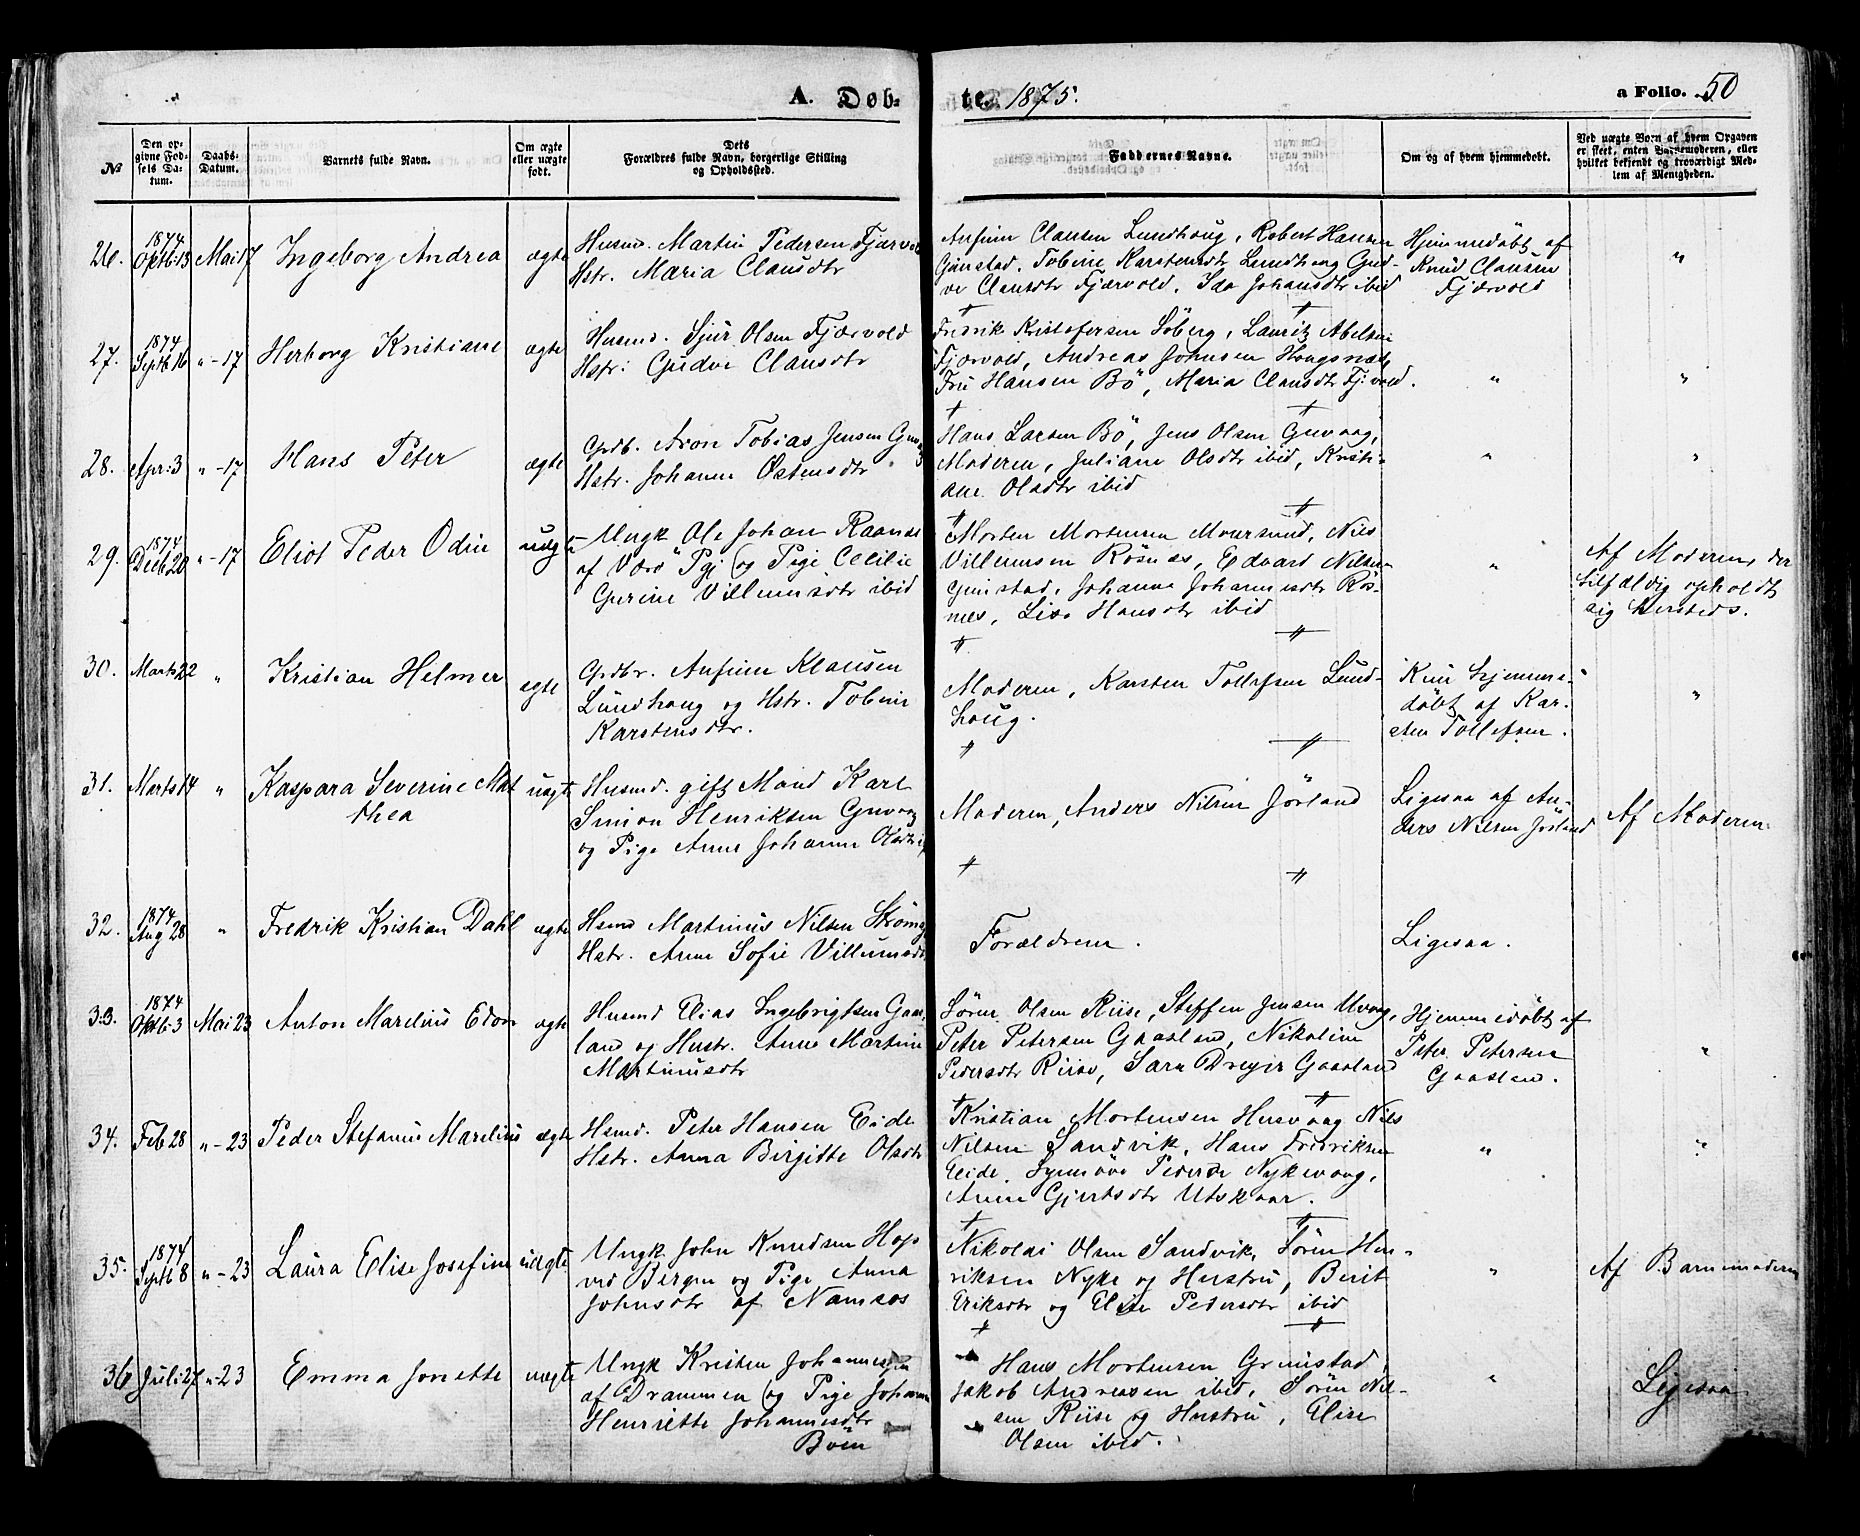 A. Døb-
te. 1875.
a Folio. 50
№
Den op-
givne Fød-
sels Da-
tum.
Daabs-
Datum.
Barnets fulde Navn.
Om ægte
eller uægte
født.
Dets
Forældres fulde Navn, borgerlige Stilling
og Opholdssted.
Faddernes Navne.
Om og af hvem hjemmedøbt.
Ved uægte Børn af hvem Opgaven
er skeet, enten Barnemoderen, eller
hvilket bekjendt og troværdigt Med-
lem af Menigheden.
26.
1874
Oktb: 13
Mai 17
Ingeborg Andrea
ægte
Husmd. Martin Pedersen Fjærvold
Hstr. Maria Clausdtr
Anfinn Clausen Lundhaug, Robert Hansen
Gimstad. Tobine Karstensdtr Lundhaug Gud-
ve Clausdtr Fjærvold. Ida Johansdtr ibid
Hjemmedöbt af
Knud Clausen
Fjærvold
"
27.
1874
Septb 16
" - 17
Herborg Kristiane
ægte
Husmd. Sjur Olsen Fjærvold
Hstr: Gudve Clausdtr
Fredrik Kristofersen Söberg, Lauritz Abelsen
Fjærvold, Andreas Johnsen Hougsnæs,
Fru Hansen Bö, Maria Clausdtr Fj.vold.
"
"
28.
Apr: 3
" - 17
Hans Peter
ægte
Grdb. Aron Tobias Jensen Guvaag
Hstr. Johanne Östensdtr
Hans Larsen Bö, Jens Olsen Guvaag,
Moderen, Juliane Olsdtr ibid, Kristi-
ane Olsdtr ibid
"
"
29.
1874
Decb 20
" - 17
Eliot Peder Odin
uægte
Ungk Ole Johan
af Værö Pgj (og Pige Cecilie
Gurine Villumsdtr ibid
Morten Mortensen Maursund, Nils
Villumsen Rösnes, Edvard Nilsen
Gimstad, Johanna Johannesdtr Rös-
nes, Lisa Hansdtr ibid
"
Af Moderen, der
tilfældig opholdt
sig hersteds.
30.
Marts 22
"
Kristian Helmer
ægte
Grdbr. Anfinn Klausen
Lundhaug og Hstr. Tobine
Karstensdtr.
Moderen, Karsten Tollefsen Lund-
haug.
Kun hjemme-
döbt af Kar-
sten Tollefsen.
"
31.
Marts 14
"
Kaspara Severine Mat
thea
uægte
Husmd. gift Mand Karl
Simon Henriksen Guvaag
og Pige Anne Johanne Olsdtr
Moderen, Anders Nilsen Jörland
Ligesaa af An-
ders Nilsen Jörland
Af Moderen
32.
1874
Aug 28
"
Fredrik Kristian Dahl
ægte
Hsmd Martinus Nilsen Ström
Hstr. Anne Sofie Villumsdtr
Forældrene.
Ligesaa.
33.
1874
Oktb. 3
Mai 23
Anton Marelius Edon
ægte
Husmd Elias Ingebrigtsen Gaas
land og Hustr. Anne Martine
Martinusdtr
Sören Olsen Riise, Steffen Jensen Uvaag,
Peter Petersen Gaasland, Nikoline
Pedersdtr Riise, Sara Dreyer Gaasland
Hjemmedöbt af
Peter Petersen
Gaasland.
"
34.
Feb 28
" - 23
Peder Stefanus Marelius
ægte
Hsmd. Peter Hansen Eide
Hstr. Anna Birgitte Olsdtr
Kristian Mortensen Husvaag Nils
Nilsen Sandvik, Hans Fredriksen
Eide. Synnöve Pedersdtr Nykvaag,
Anne Gjertsdtr Utskaar.
"
"
35.
1874
Septb 8
" - 23
Laura Elise Josefine
uægte
Ungk. John Knudsen Hop
ved Bergen og Pige Anna
Johnsdtr af Namsos
Nikolai Olsen Sandvik, Sören Hen-
riksen Nyke og Hustru, Berit
Eriksdtr og Elise Pedersdtr ibid
"
Af Barnemoderen
36
Juli: 27
" - 23
Emma Jonette
uægte
Ungk Kristen Johannesen
af Drammen (og Pige Johanne
Henriette Johannesdtr
Böen
Hans Mortensen Grimstad,
Jakob Andreasen ibid. Sören Nil-
sen Riise og Hustru, Elise
Olsen ibid.
"
Ligesaa